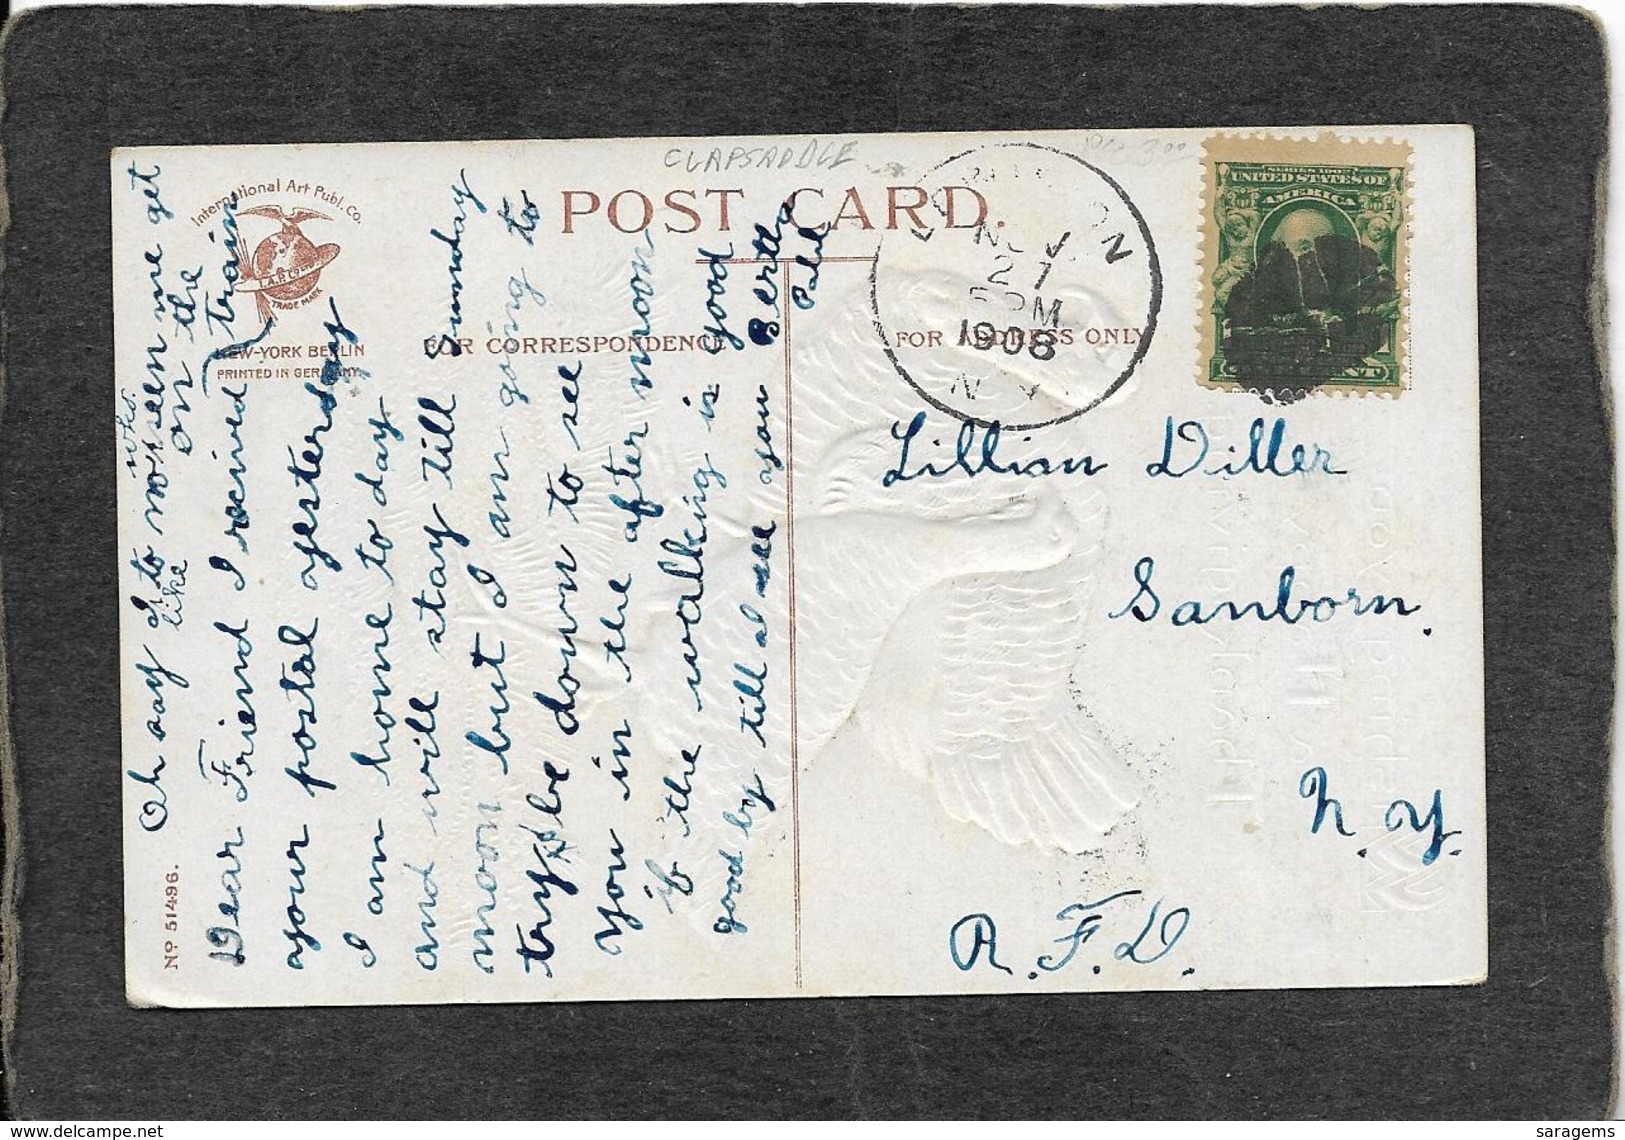 CLAPSADDLE
POST CARD.
International Art Publ. Co.
I.A.P. Co.
TRADE MARK
NEW-YORK BERLIN
PRINTED IN GERMANY.
FOR CORRESPONDENCE
FOR ADDRESS ONLY
No 51496.
NOV
27
PM
1908
N.Y.
UNITED STATES OF
AMERICA
Oh say I to who noseen me get
like on the train
Dear Friend I received
your postal yesterday
I am home to day
and will stay till Sunday
noon but I am going to
try + be down to see
you in the after noon
if the walking is good
good by till I see you Bertha
Lillian Diller
Sanborn.
N.Y.
R.F.D.
delcampe.net
saragems